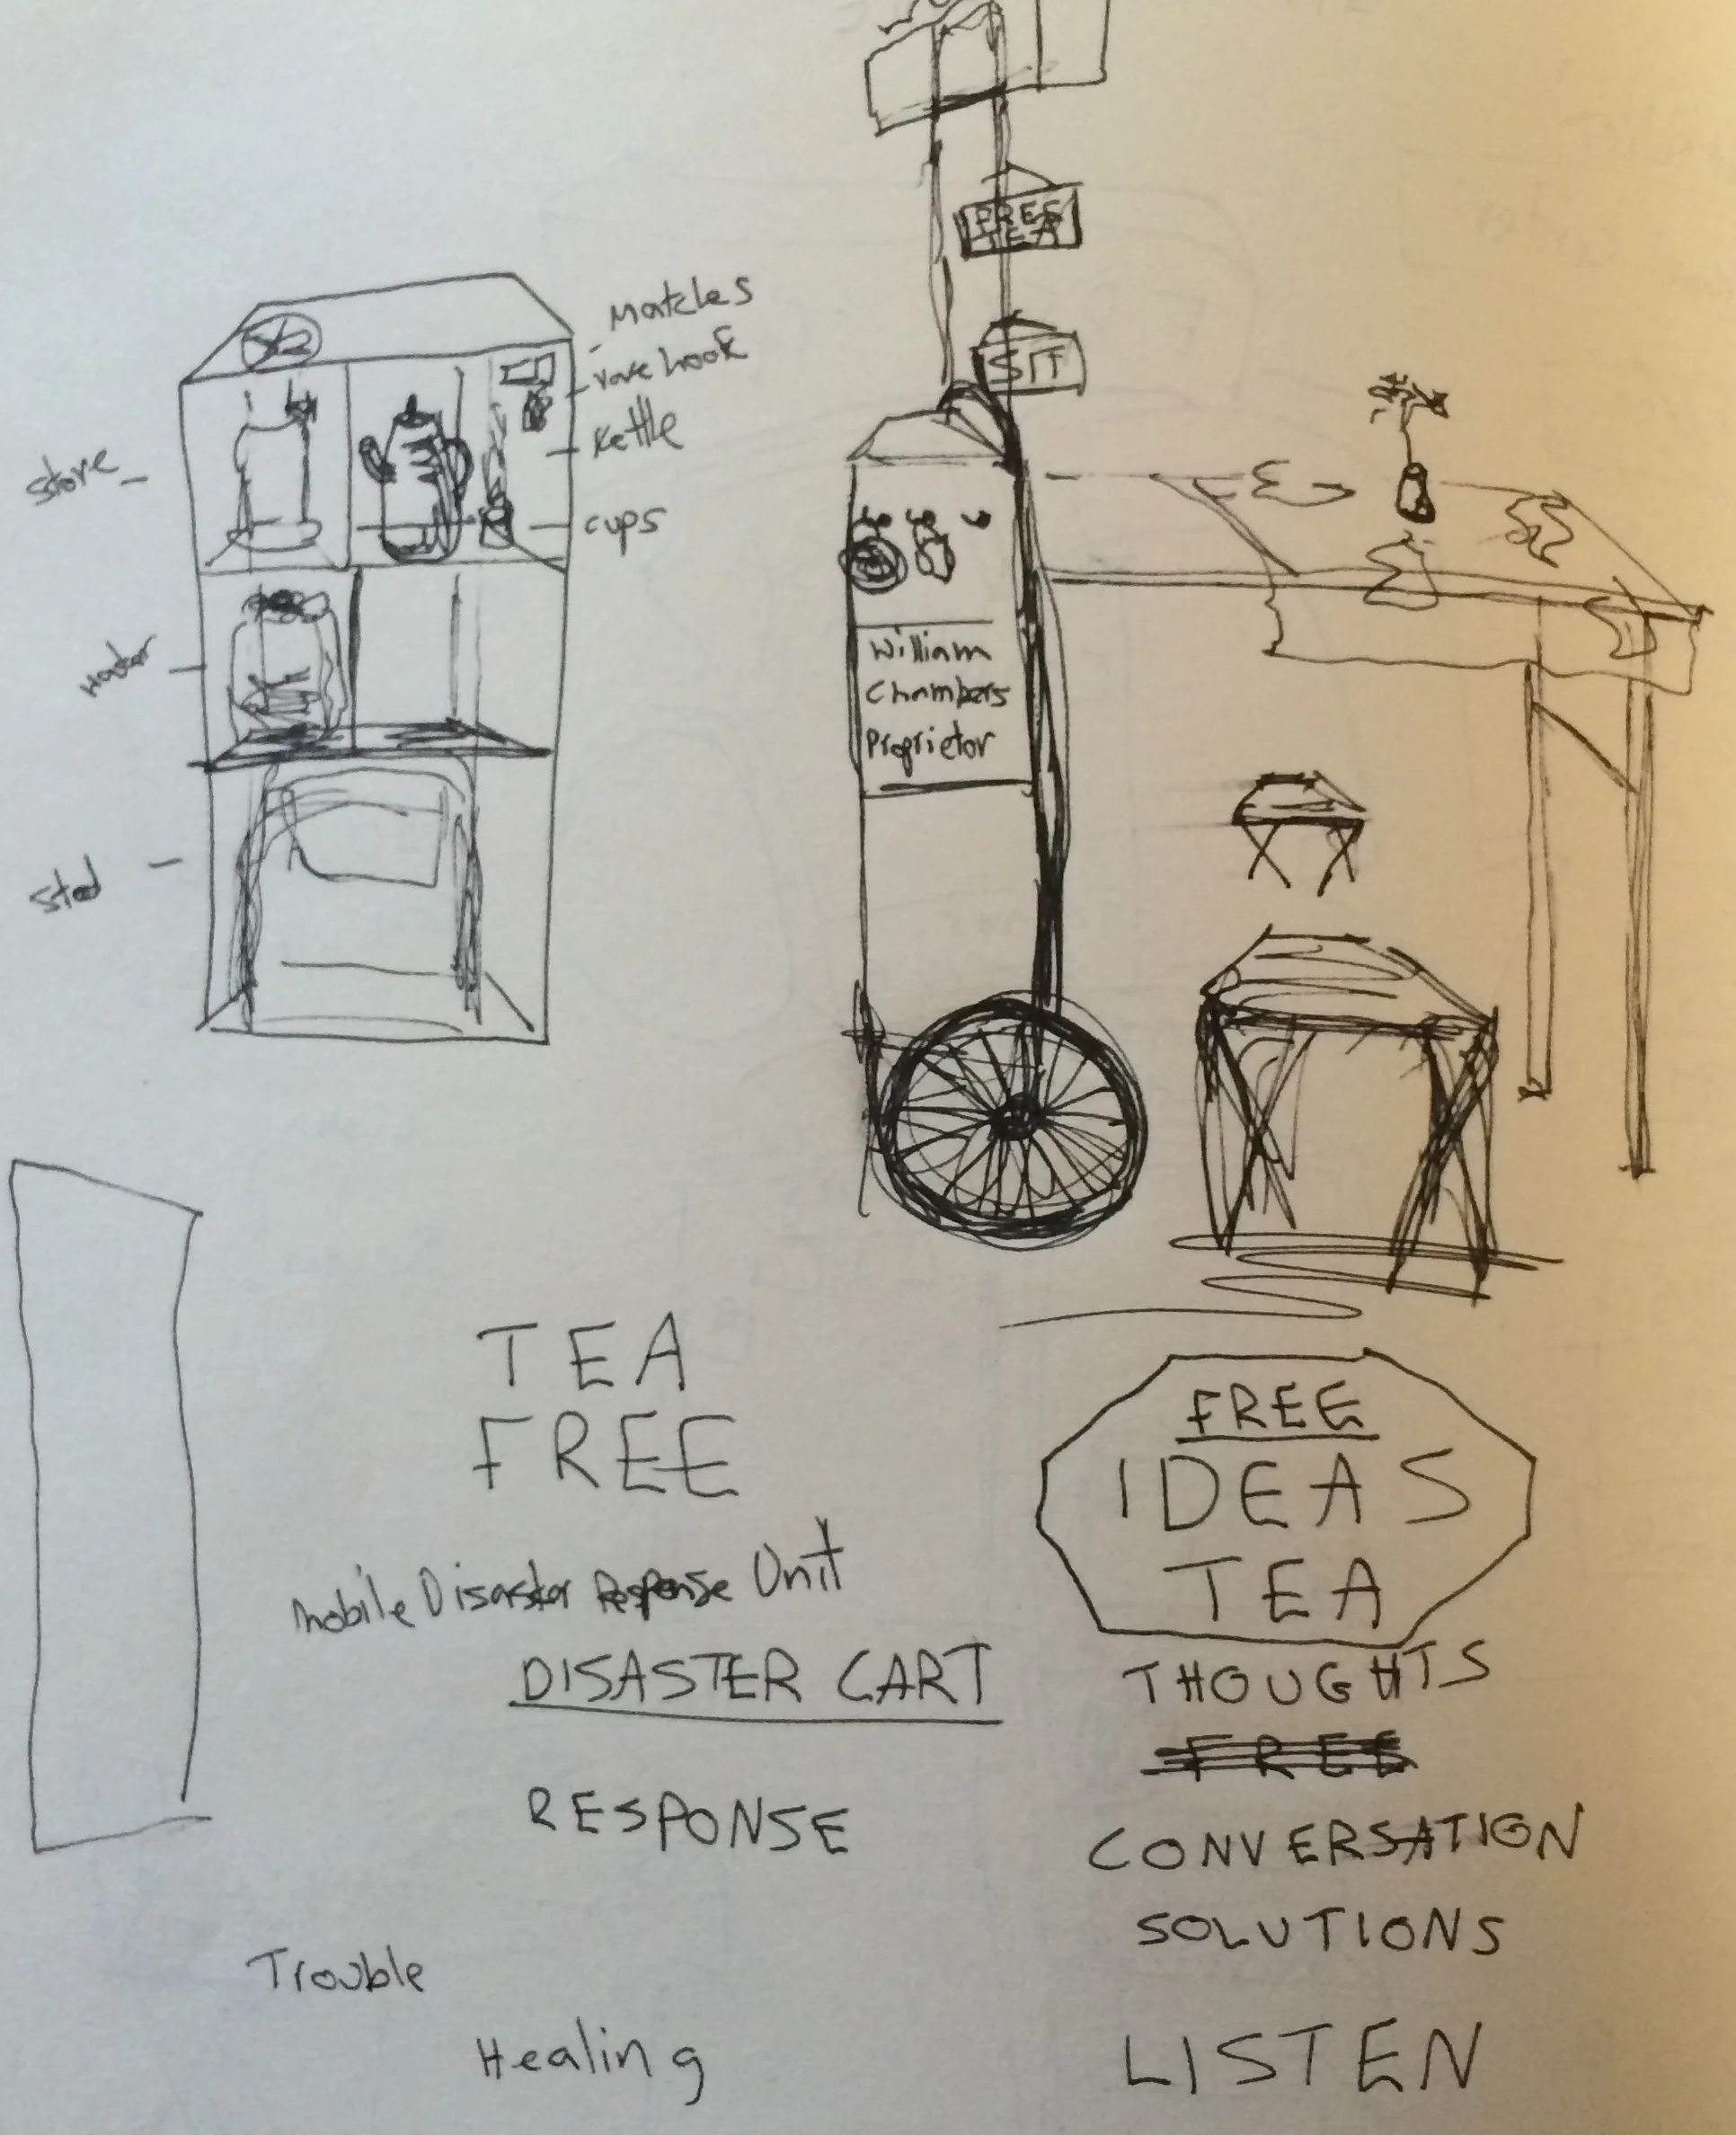 FREE
TEA
SIT
Matches
Kettle
cups
Stove
Water
Stool
William
Chambers
Proprietor
TEA
FREE
Mobile Disaster Response Unit
DISASTER CART
RESPONSE
Trouble
Healing
FREE
IDEAS
TEA
THOUGHTS
FREE
CONVERSATION
SOLUTIONS
LISTEN